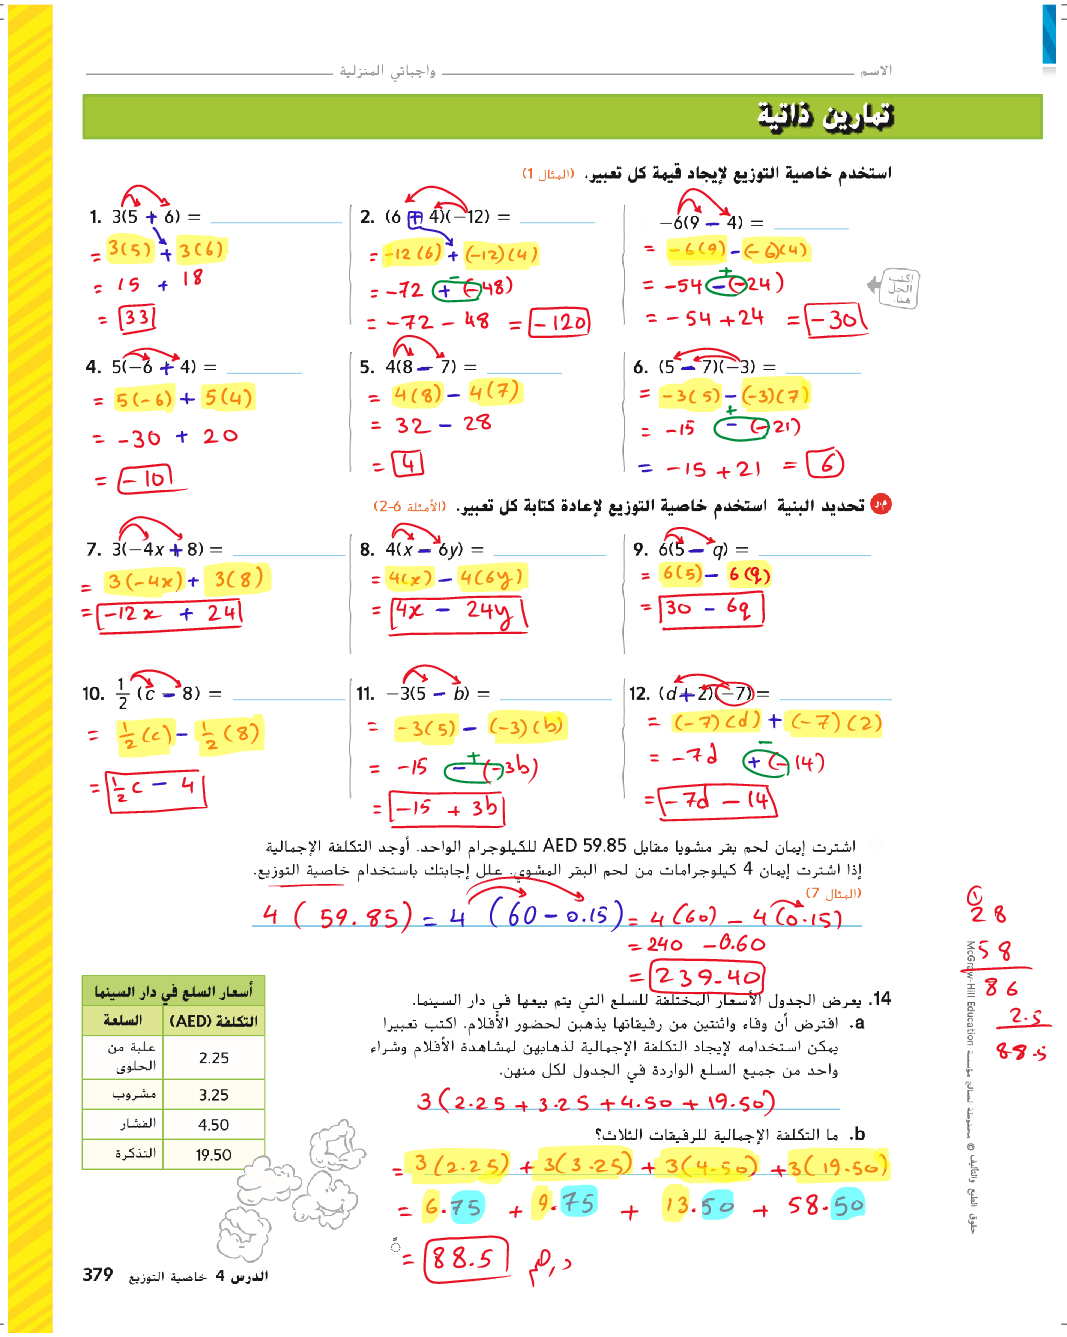 الاسم ______ واجباتي المنزلية ______
تمارين ذاتية
استخدم خاصية التوزيع لإيجاد قيمة كل تعبير. (المثال 1)
1. 3(5 + 6) =
= 3(5) + 3(6)
= 15 + 18
= 33
2. (6 + 4)(−12) =
= -12(6) + (-12)(4)
= -72 + (-48)
= -72 - 48 = -120
−6(9 − 4) =
= -6(9) - (-6)(4)
= -54 - (-24)
= -54 + 24 = -30
اكتب
الحل
هنا.
4. 5(−6 + 4) =
= 5(-6) + 5(4)
= -30 + 20
= -10
5. 4(8 − 7) =
= 4(8) - 4(7)
= 32 - 28
= 4
6. (5 − 7)(−3) =
= -3(5) - (-3)(7)
= -15 - (-21)
= -15 + 21 = 6
م.ر تحديد البنية استخدم خاصية التوزيع لإعادة كتابة كل تعبير. (الأمثلة 6-2)
7. 3(−4x + 8) =
= 3(-4x) + 3(8)
= -12x + 24
8. 4(x − 6y) =
= 4(x) - 4(6y)
= 4x - 24y
9. 6(5 − q) =
= 6(5) - 6(q)
= 30 - 6q
10. 1/2 (c − 8) =
= 1/2 (c) - 1/2 (8)
= 1/2 c - 4
11. −3(5 − b) =
= -3(5) - (-3)(b)
= -15 - (-3b)
= -15 + 3b
12. (d + 2)(−7) =
= (-7)(d) + (-7)(2)
= -7d + (-14)
= -7d - 14
اشترت إيمان لحم بقر مشويا مقابل AED 59.85 للكيلوجرام الواحد. أوجد التكلفة الإجمالية
إذا اشترت إيمان 4 كيلوجرامات من لحم البقر المشوي. علل إجابتك باستخدام خاصية التوزيع.
(المثال 7)
4 (59.85) = 4 (60 - 0.15) = 4(60) - 4(0.15)
= 240 - 0.60
= 239.40
1
28
58
86
2.5
88.5
14. يعرض الجدول الأسعار المختلفة للسلع التي يتم بيعها في دار السينما.
a. افترض أن وفاء واثنتين من رفيقاتها يذهبن لحضور الأفلام. اكتب تعبيرا
يمكن استخدامه لإيجاد التكلفة الإجمالية لذهابهن لمشاهدة الأفلام وشراء
واحد من جميع السلع الواردة في الجدول لكل منهن.
3(2.25 + 3.25 + 4.50 + 19.50)
b. ما التكلفة الإجمالية للرفيقات الثلاث؟
= 3(2.25) + 3(3.25) + 3(4.50) + 3(19.50)
= 6.75 + 9.75 + 13.50 + 58.50
= 88.5 درهم
أسعار السلع في دار السينما
السلعة التكلفة (AED)
علبة من الحلوى 2.25
مشروب 3.25
الفشار 4.50
التذكرة 19.50
حقوق الطبع والتأليف © محفوظة لصالح مؤسسة McGraw-Hill Education
الدرس 4 خاصية التوزيع 379